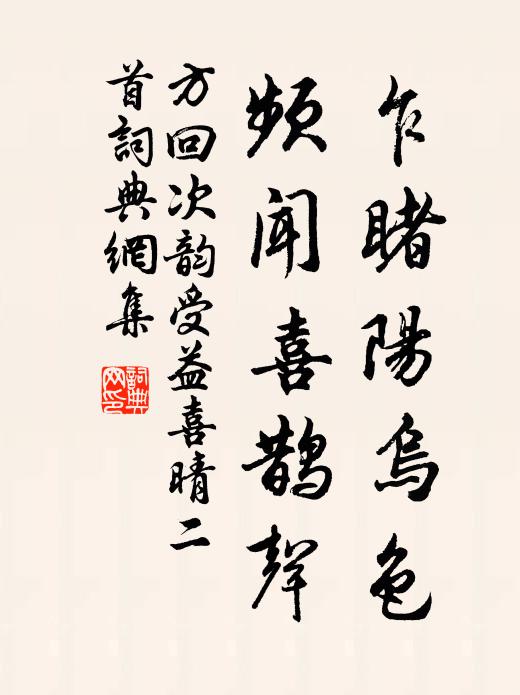 乍睹陽烏色
頻聞喜鵲聲
方回次韵受益喜晴二
首詞典網集
詞典
网印